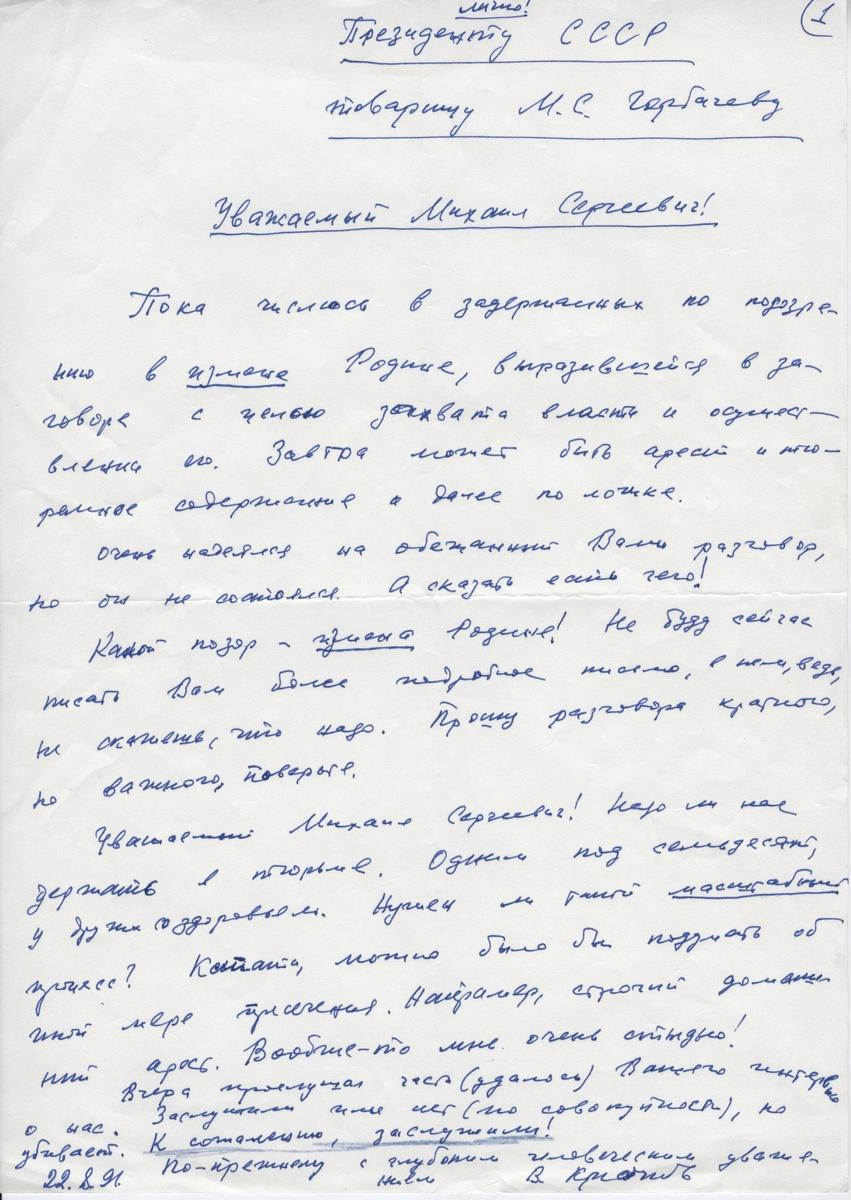 лично!
1
Президенту СССР
товарищу М.С. Горбачеву
Уважаемый Михаил Сергеевич!
Пока числюсь в задержанных по подозре-
нию в измене Родине, выразившейся в за-
говоре с целью захвата власти и осущест-
влении его. Завтра может быть арест и тю-
ремное содержание и далее по логике.
Очень надеялся на обещанный Вами разговор,
но он не состоялся. А сказать есть чего!
Какой позор – измена Родине! Не буду сейчас
писать Вам более подробное письмо, в нем, ведь,
не скажешь, что надо. Прошу разговора краткого,
но важного, поверьте.
Уважаемый Михаил Сергеевич! Надо ли нас
держать в тюрьме. Одним под семьдесят,
у других со здоровьем. Нужен ли такой масштабный
процесс? Кстати, можно было бы подумать об
иной мере пресечения. Например, строгий домаш-
ний арест. Вообще-то мне очень стыдно!
Вчера прослушал часть (удалось) Вашего интервью
о нас. Заслужили или нет (по совокупности), но
убивает. К сожалению, заслужили!
По-прежнему с глубоким человеческим уваже-
нием В. Крючков
22.8.91